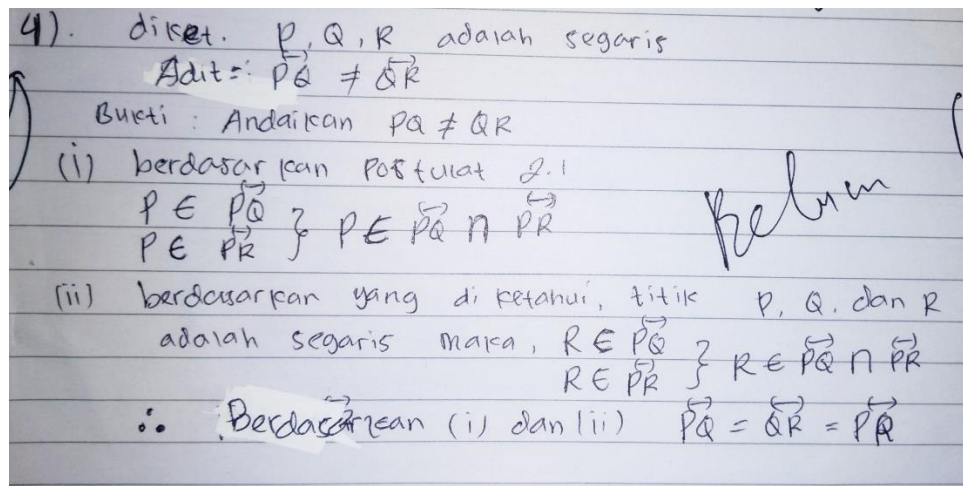 4). diket. P, Q, R adalah segaris
Adit =: PQ ≠ QR
Bukti : Andaikan PQ ≠ QR
(i) berdasarkan Postulat 2.1
P ∈ PQ
P ∈ PR } P ∈ PQ ∩ PR
Belum
(ii) berdasarkan yang diketahui, titik P, Q, dan R
adalah segaris maka, R ∈ PQ
R ∈ PR } R ∈ PQ ∩ PR
∴ Berdasarkan (i) dan (ii) PQ = QR = PR